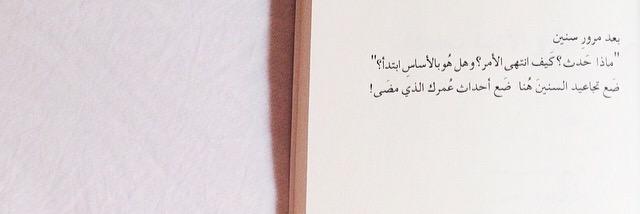 بعد مرورِ سنين
"ماذا حَدث؟ كَيف انتهى الأمر؟ وهل هُو بالأساسِ ابتدأ؟"
ضَع تجاعيد السنينَ هُنا ضَع أحداث عُمرك الذي مضَى!